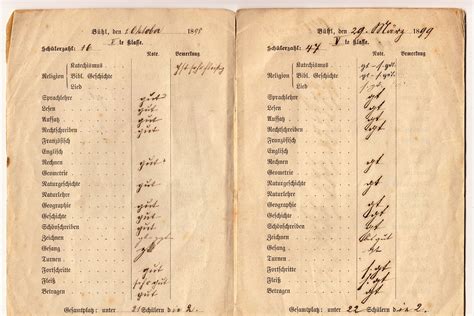 Bühl, den 1 Oktober 18
Schülerzahl: 16 te Klasse.
Note. Bemerkung
Katechismus
Religion Bibl. Geschichte
Lied
Sprachlehre gut
Lesen gut
Aufsatz gut
Rechtschreiben gut
Französisch
Englisch
Rechnen gut
Geometrie
Naturgeschichte gut
Naturlehre
Geographie gut
Geschichte gut
Schönschreiben gut
Zeichnen
Gesang gt
Turnen
Fortschritte gut
Fleiß sehr gut
Betragen gut
Gesamtplatz: unter 21 Schülern die 2.
Bühl, den 29. März 1899
Schülerzahl: 47 V te Klasse.
Note. Bemerkung
Katechismus
Religion Bibl. Geschichte
Lied
Sprachlehre gt
Lesen gt
Aufsatz gt
Rechtschreiben gt
Französisch
Englisch
Rechnen gt
Geometrie
Naturgeschichte gt
Naturlehre
Geographie gt
Geschichte gt
Schönschreiben gt
Zeichnen
Gesang
Turnen
Fortschritte gt
Fleiß gt
Betragen gt
Gesamtplatz: unter 22 Schülern die 2.